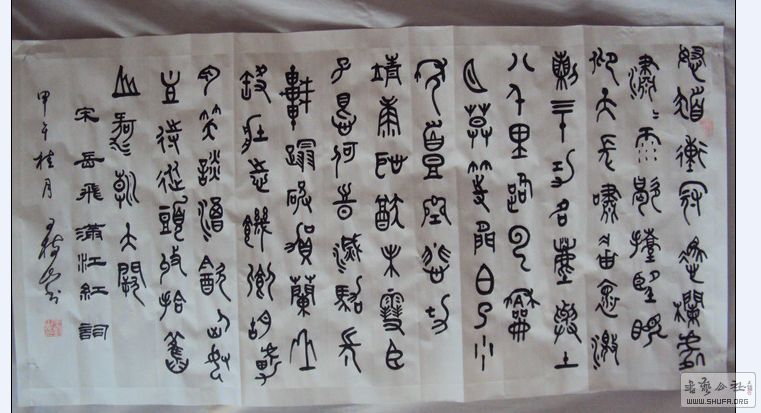 怒髮衝冠憑欄處
潚潚雨歇擡望眼
仰天長嘯壯懷激
烈三十功名塵與土
八千里路雲龢
月莫等閒白了少
年頭空悲切
靖康恥猶未雪臣
子恨何時滅駕長
車蹋破賀蘭山
缺壯志飢餐胡虜
肉笑談渴飲匈奴
血待從頭收拾舊
山河朝天闕
宋岳飛滿江紅詞
甲午桂月
書藝公社
WWW.SHUFA.ORG